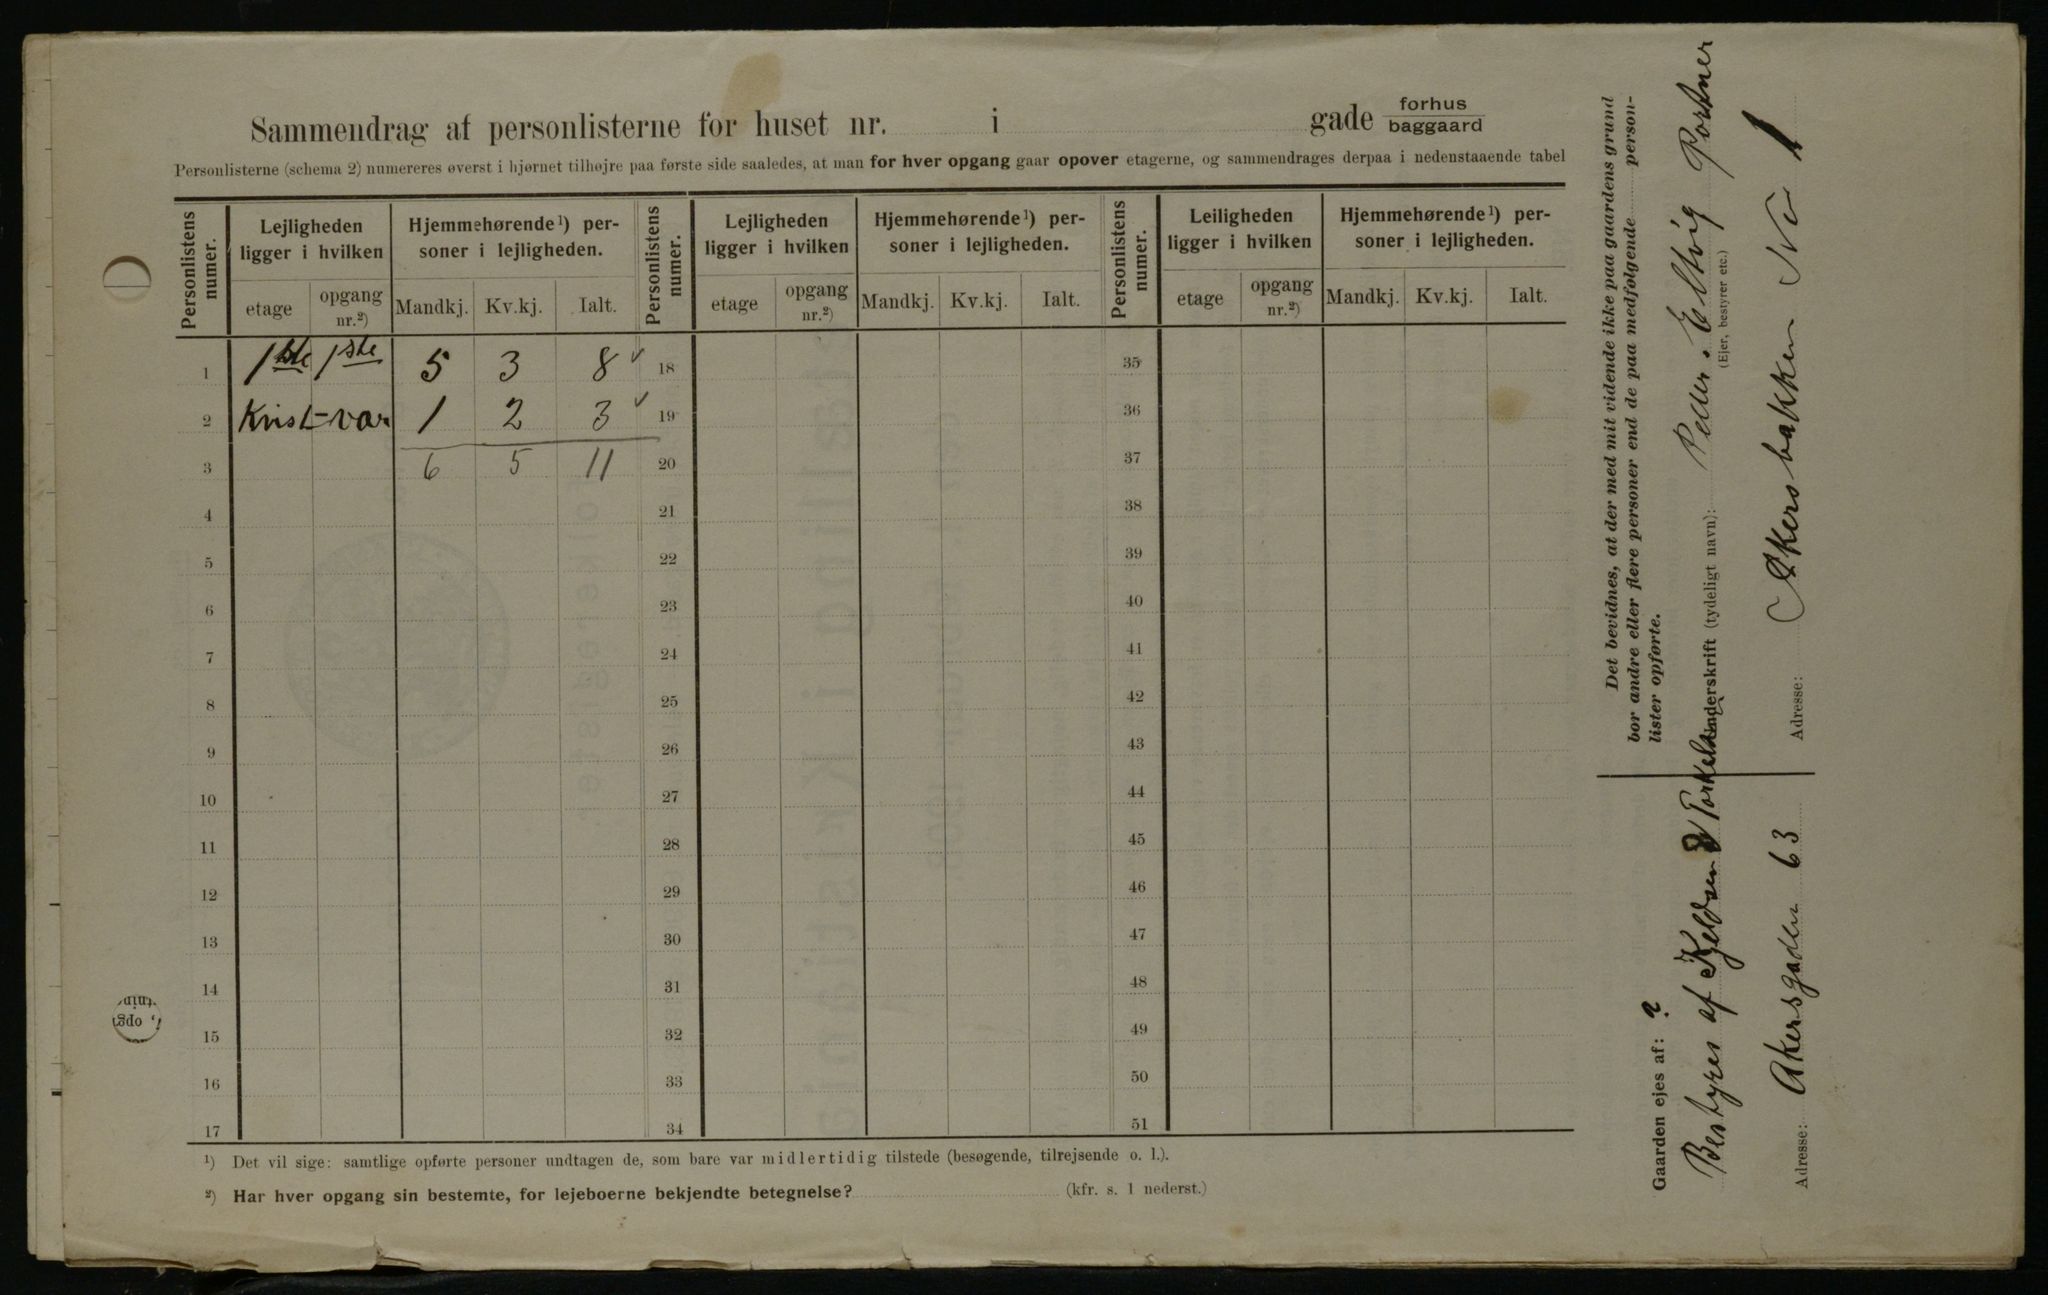 Sammendrag af personlisterne for huset nr. i gade forhus
baggaard
Personlisterne (schema 2) numereres øverst i hjørnet tilhøjre paa første side saaledes, at man for hver opgang gaar opover etagerne, og sammendrages derpaa i nedenstaaende tabel
Personlistens numer. Lejligheden ligger i hvilken Hjemmehørende¹) personer i lejligheden. Personlistens numer. Lejligheden ligger i hvilken Hjemmehørende¹) personer i lejligheden. Personlistens numer. Leiligheden ligger i hvilken Hjemmehørende¹) personer i lejligheden.
etage opgang nr.²) Mandkj. Kv.kj. Ialt. etage opgang nr.²) Mandkj. Kv.kj. Ialt. etage opgang nr.²) Mandkj. Kv.kj. Ialt.
1 1ste 1ste 5 3 8 18 35
2 Krist-var 1 2 3 19 36
3 6 5 11 20 37
4 21 38
5 22 39
6 23 40
7 24 41
8 25 42
9 26 43
10 27 44
11 28 45
12 29 46
13 30 47
14 31 48
15 32 49
16 33 50
17 34 51
¹) Det vil sige: samtlige opførte personer undtagen de, som bare var midlertidig tilstede (besøgende, tilrejsende o. l.).
²) Har hver opgang sin bestemte, for lejeboerne bekjendte betegnelse? (kfr. s. 1 nederst.)
Det bevidnes, at der med mit vidende ikke paa gaardens grund
bor andre eller flere personer end de paa medfølgende person-
lister opførte.
Underskrift (tydeligt navn): Peder. Portner
(Ejer, bestyrer etc.)
Adresse: Akersbakken No 1
Gaarden ejes af: ?
Bestyres af Kjeldsen & Torkelsen
Adresse: Akersgaden 63